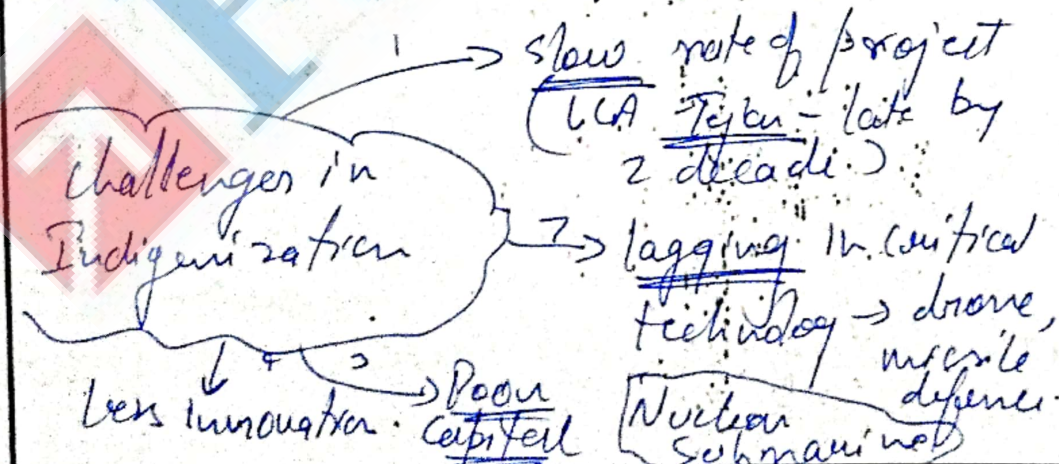 Challenges in
Indigenization
1
slow rate of project
(LCA Tejas - late by
2 decade.)
2
lagging in critical
technology → drone,
missile
defence.
Nuclear
Submarines
3
Poor
Capital
4
Less innovation.